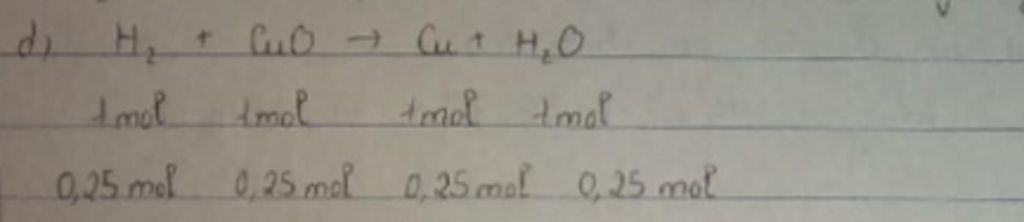 d) H₂ + CuO → Cu + H₂O
1mol 1mol 1mol 1mol
0,25 mol 0,25 mol 0,25 mol 0,25 mol